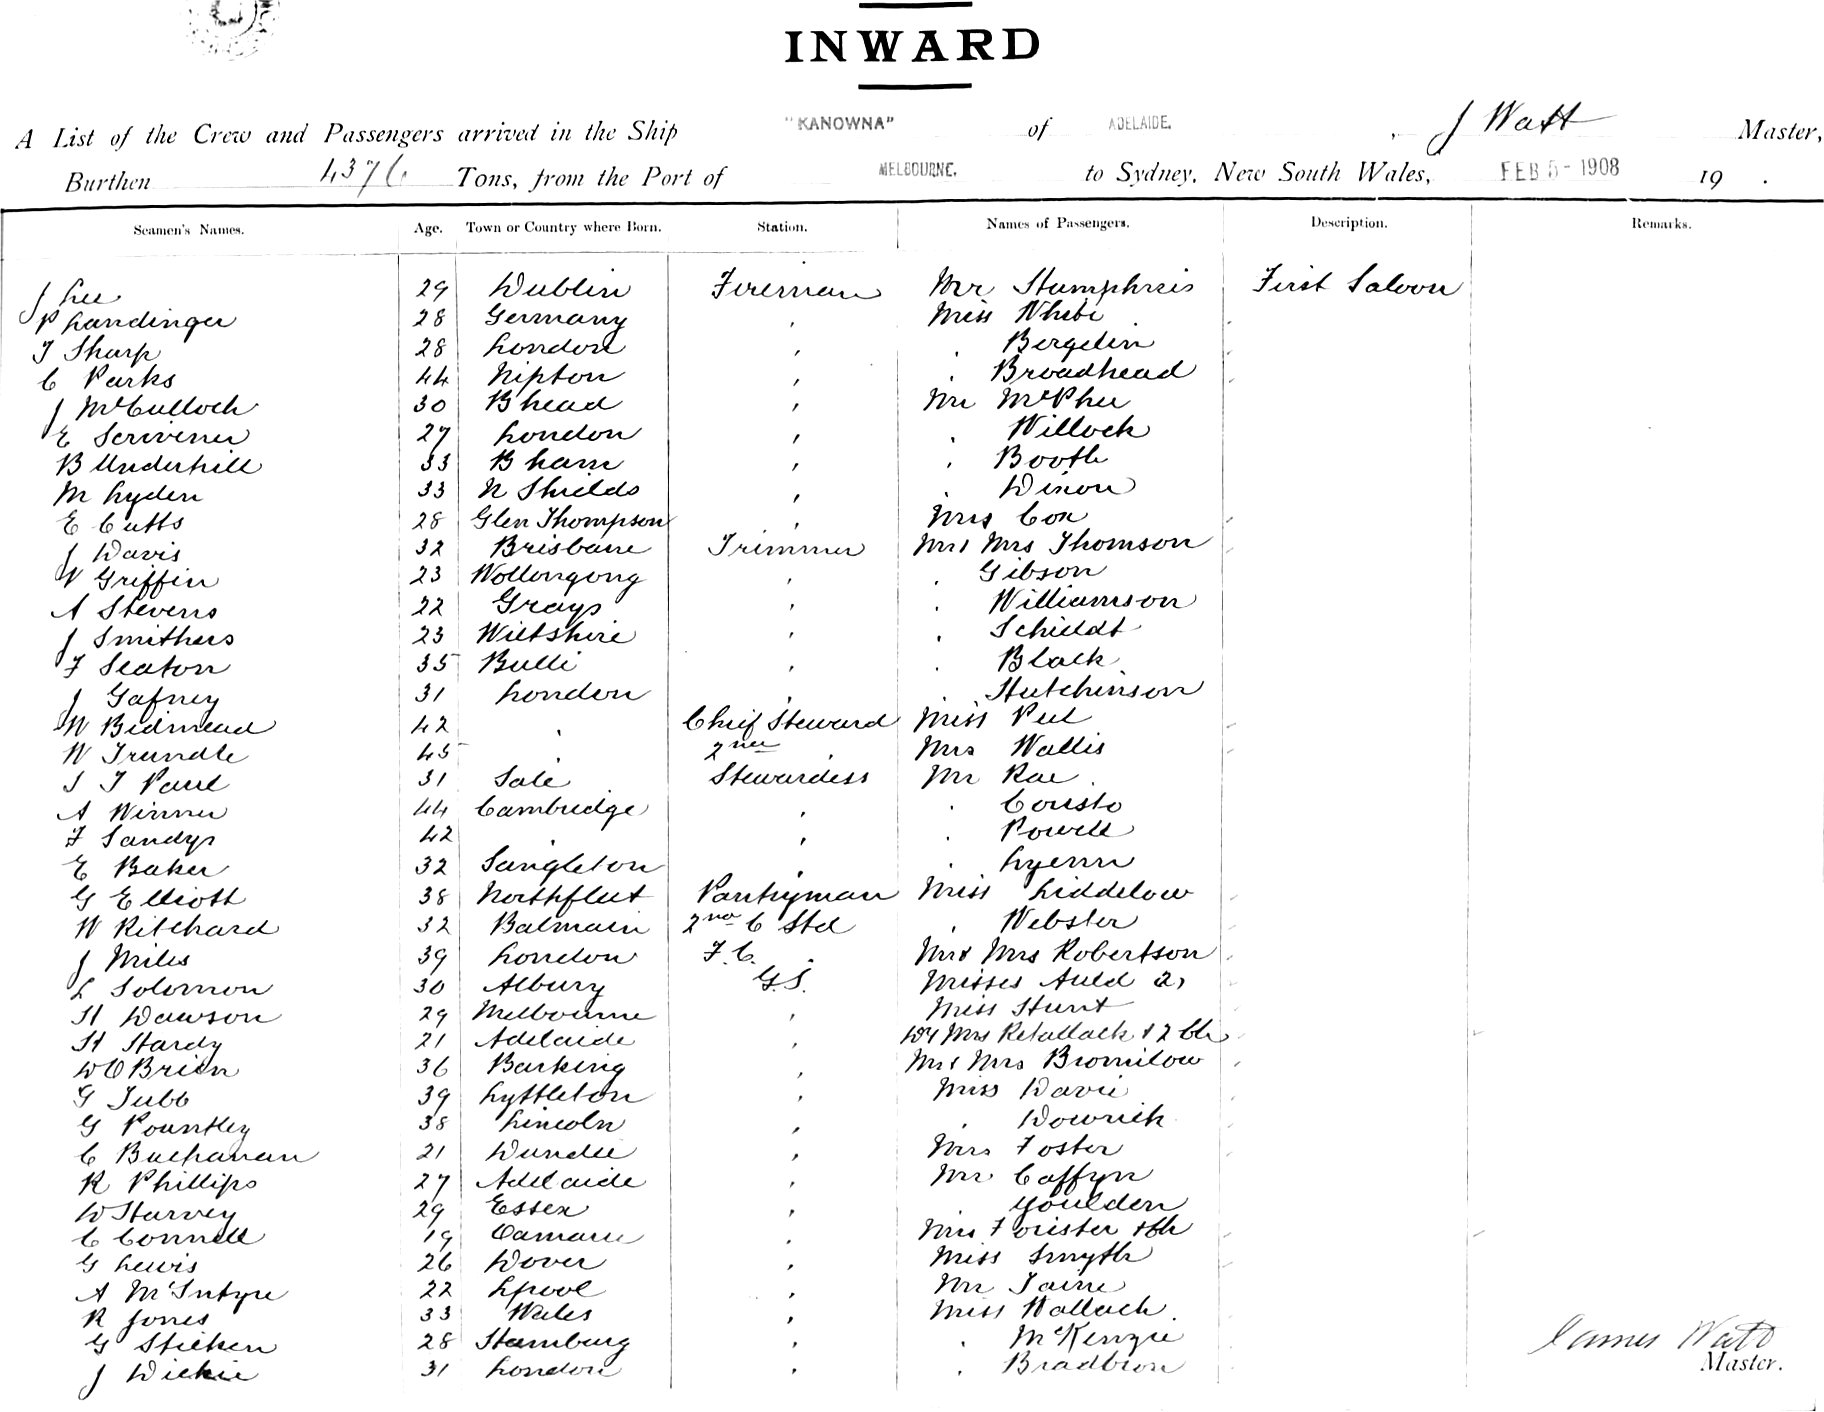 INWARD
A List of the Crew and Passengers arrived in the Ship "KANOWNA" of ADELAIDE. J Watt Master,
Burthen 4376 Tons, from the Port of MELBOURNE. to Sydney, New South Wales, FEB 5 - 1908 19 .
Seamen's Names. Age. Town or Country where Born. Station. Names of Passengers. Description. Remarks.
J Lee 29 Dublin Fireman Mr Humphris First Saloon
P Landinger 28 Germany , Miss White
T Sharp 28 London , . Bergelin
C Parks 44 Nipton , . Broadhead
J McCulloch 30 B head , Mr McPhee
E Scrivener 27 London , . Willock
B Underhill 33 B ham , . Booth
M Lyden 33 N Shields , . Dixon
E Catts 28 Glen Thompson , Mrs Cox
J Davis 32 Brisbane Trimmer Mr & Mrs Thomson
W Griffin 23 Wollongong , . Gibson
A Stevens 22 Grays , . Williamson
J Smithers 23 Wiltshire , . Schildt
F Seaton 35 Bulli , . Black
J Gafney 31 London , . Hutchinson
W Bidmead 42 . Chief Steward Miss Peel
W Trundle 45 . 2nd , Mrs Wallis
S J Paul 31 Sale Stewardess Mr Rae
A Winner 44 Cambridge , . Cousto
F Sandys 42 . , . Powell
E Baker 32 Sangleton , . Lyenn
G Elliott 38 Northfleet Pantryman Miss Liddelow
W Ritchard 32 Balmain 2nd C Std . Webster
J Miles 39 London F.C. . Mr & Mrs Robertson
L Solomon 30 Albury G.S. Misses Auld 2
H Dawson 29 Melbourne , Miss Hunt
H Hardy 21 Adelaide , Mrs Retallack & 2 Ch
W O'Brien 36 Barking , Mr & Mrs Bromilow
G Tubb 39 Lyttleton , Miss Davie
G Pountley 38 Lincoln , . Dowrick
C Buchanan 21 Dundee , Mrs Foster
R Phillips 27 Adelaide , Mr Caffyn
W Harvey 29 Essex , . Goulden
C Connell 19 Oamaru , Mrs Forister & Ch
G Lewis 26 Dover , Miss Smyth
A McIntyre 22 Lpool , Mr Taine
R Jones 33 Wales , Miss Wallach
G Sticken 28 Hamburg , . McKenzie
J Dickie 31 London , . Bradbion
James Watt
Master.